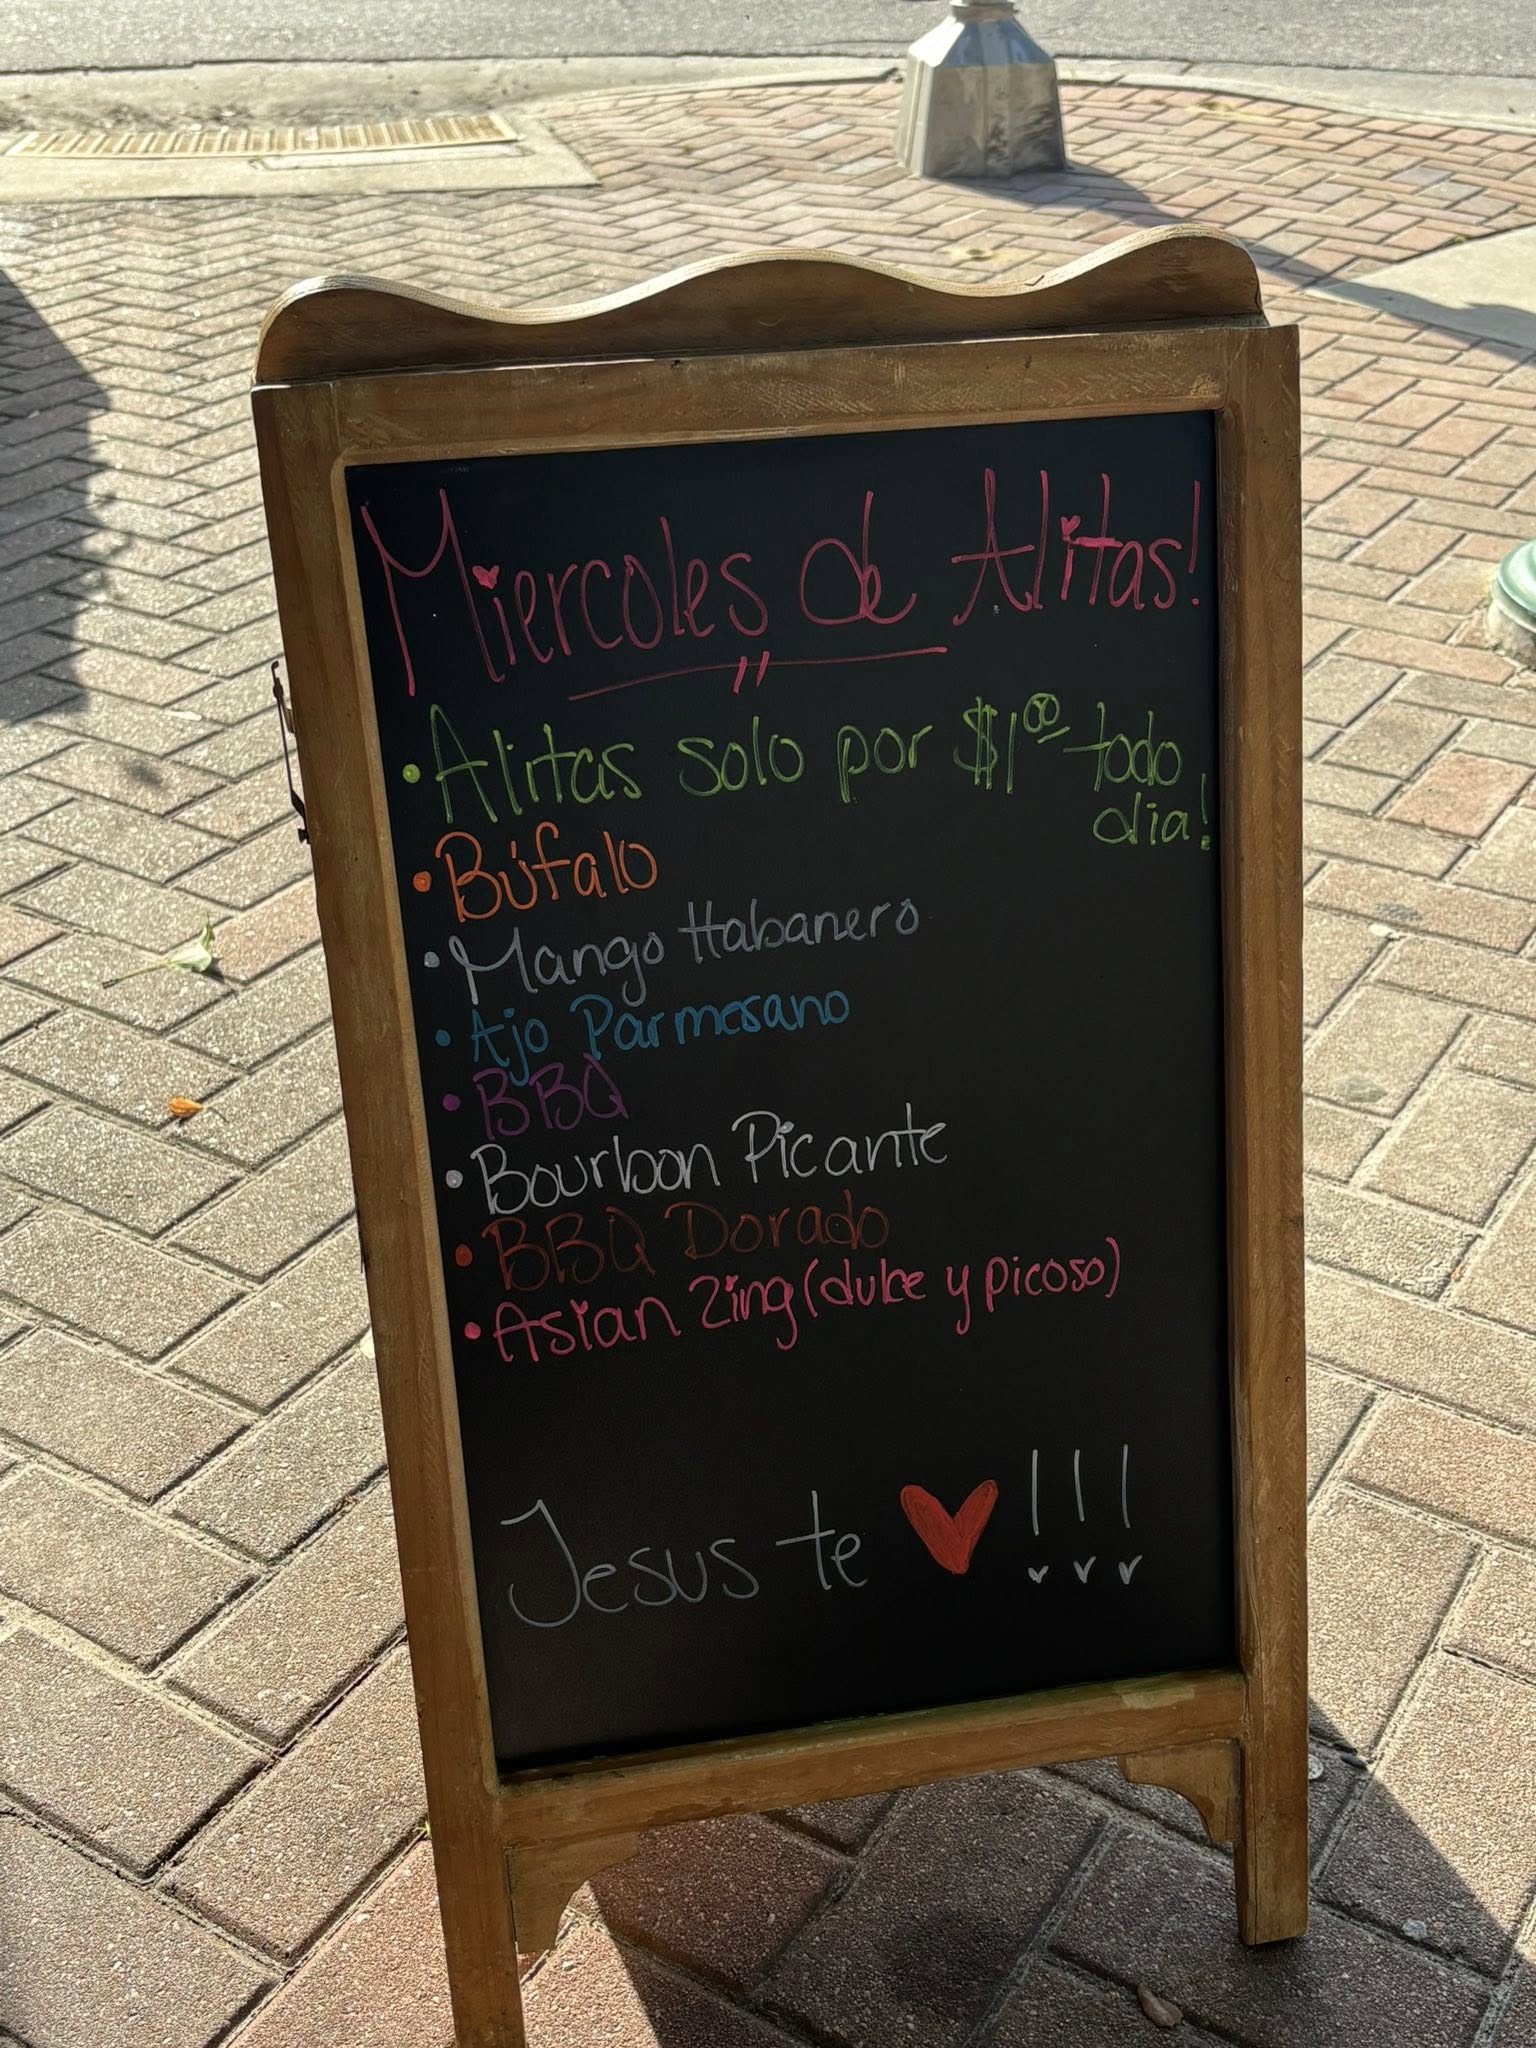 Miercoles de Alitas!
• Alitas solo por $1.00 todo
dia!
• Búfalo
• Mango Habanero
• Ajo Parmesano
• BBQ
• Bourbon Picante
• BBQ Dorado
• Asian Zing (dulce y picoso)
Jesus te ♥ !!!